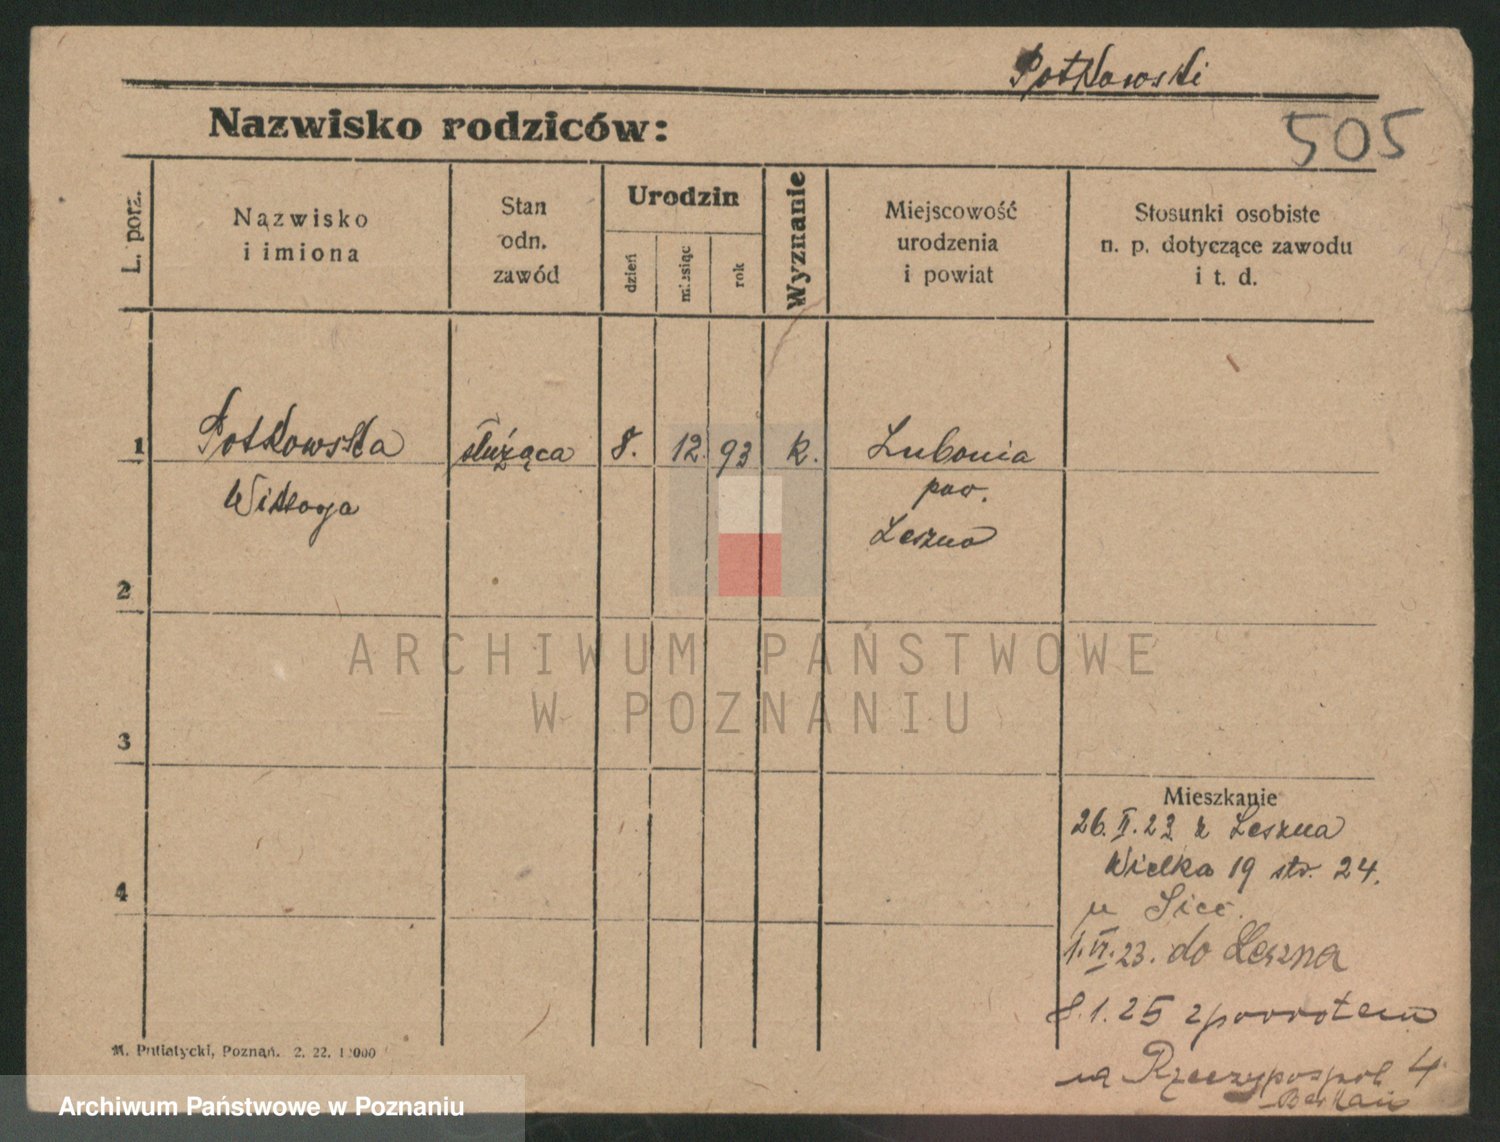 Potkowski
Nazwisko rodziców:
505
L. porz.
Nazwisko
i imiona
Stan
odn.
zawód
Urodzin
dzień
miesiąc
rok
Wyznanie
Miejscowość
urodzenia
i powiat
Stosunki osobiste
n. p. dotyczące zawodu
i t. d.
1
Potkowska
służąca
8.
12.
93
k.
Lubonia
Wiktorja
pow.
Leszno
2
ARCHIWUM PAŃSTWOWE
W POZNANIU
3
Mieszkanie
26. II. 23 z Leszna
Wielka 19 str. 24.
4
u
1. VI. 23. do Leszna
8. 1. 25 zpowrotem
na Rzeczypospol. 4
M. Putiatycki, Poznań. 2. 22. 12000
Archiwum Państwowe w Poznaniu